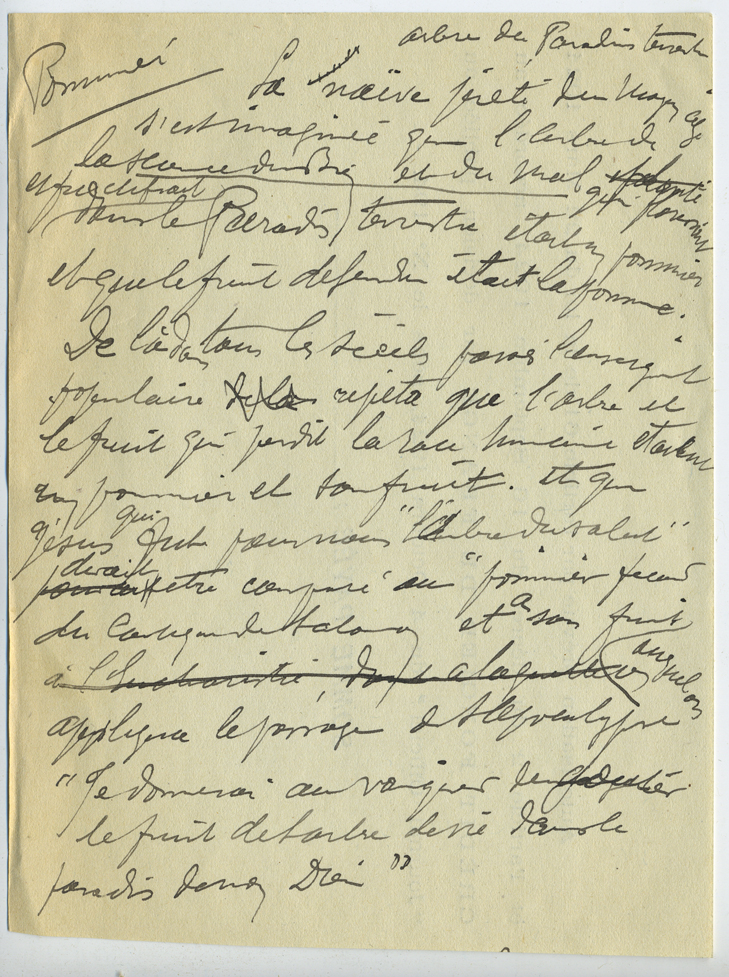 arbre du Paradis terrestre
Pommier
La naïve piété du Moyen age
s'est imaginée que l'arbre de
la science du Bien et du Mal planté
qui poussait
dans le Paradis terrestre était un pommier
et que le fruit defendu était la pomme.
De là dans tous les siècles passés l'enseignt
populaire de la répéta que l'arbre et
le fruit qui perdit la race humaine étaient
un pommier et son fruit. et que
Jésus qui fut pour nous "l'arbre du salut"
devait être comparé au "pommier fécond
du Cantique de Salomon et a son fruit
à l'Eucharistie, a laquelle
applique le passage de l'Apocalypse
"Je donnerai au vainqueur de gouter
le fruit de l'arbre de vie dans le
paradis de mon Dieu"